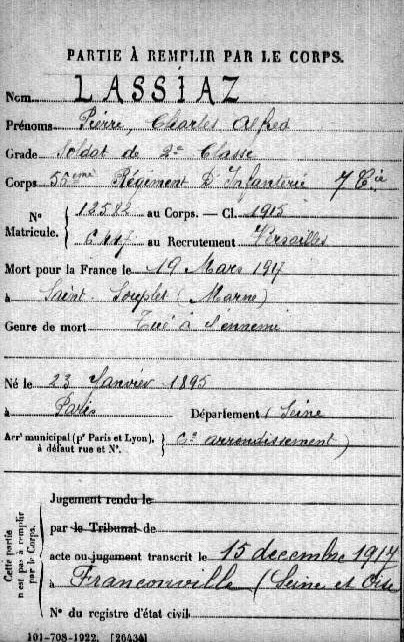 PARTIE À REMPLIR PAR LE CORPS.
Nom LASSIAZ
Prénoms Pierre, Charles Alfred
Grade Soldat de 2e Classe
Corps Régiment D'Infanterie 7 Cie
No Matricule. { 12582 au Corps. — Cl. 1915
au Recrutement Versailles
Mort pour la France le 19 Mars 1917
à Saint-Souplet (Marne)
Genre de mort Tué à l'ennemi
Né le 23 Janvier 1895
à Paris Département Seine
Arrt municipal (pr Paris et Lyon), à défaut rue et No. } arrondissement)
Cette partie n'est pas à remplir par le Corps.
Jugement rendu le
par le Tribunal de
acte ou jugement transcrit le 15 decembre 1917
à Franconville (Seine et Oise
No du registre d'état civil
101-708-1922. [26434]